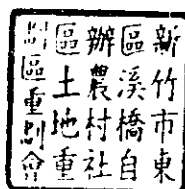 新竹市東
區溪橋自
辦農村社
區土地重
劃區重劃會